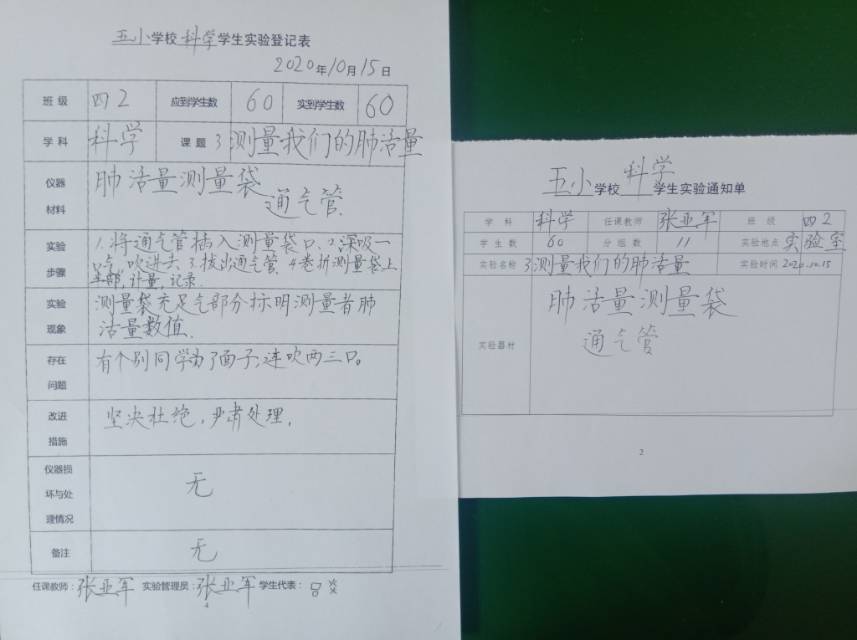 五小学校科学学生实验登记表
2020年10月15日
班级 四2 应到学生数 60 实到学生数 60
学科 科学 课题 3测量我们的肺活量
仪器材料 肺活量测量袋
通气管.
实验步骤 1.将通气管插入测量袋口、2.深吸一
气,吹进去、3.拔出通气管.4.卷折测量袋上
部,计量,记录.
实验现象 测量袋充足气部分标明测量者肺
活量数值.
存在问题 有个别同学为了面子,连吹两三口。
改进措施 坚决杜绝,严肃处理.
仪器损坏与处理情况 无
备注 无
任课教师:张亚军 实验管理员:张亚军 学生代表:
4
五小学校科学学生实验通知单
学科 科学 任课教师 张亚军 班级 四2
学生数 60 分组数 11 实验地点 实验室
实验名称 3测量我们的肺活量 实验时间 2020.10.15
实验器材 肺活量测量袋
通气管
2